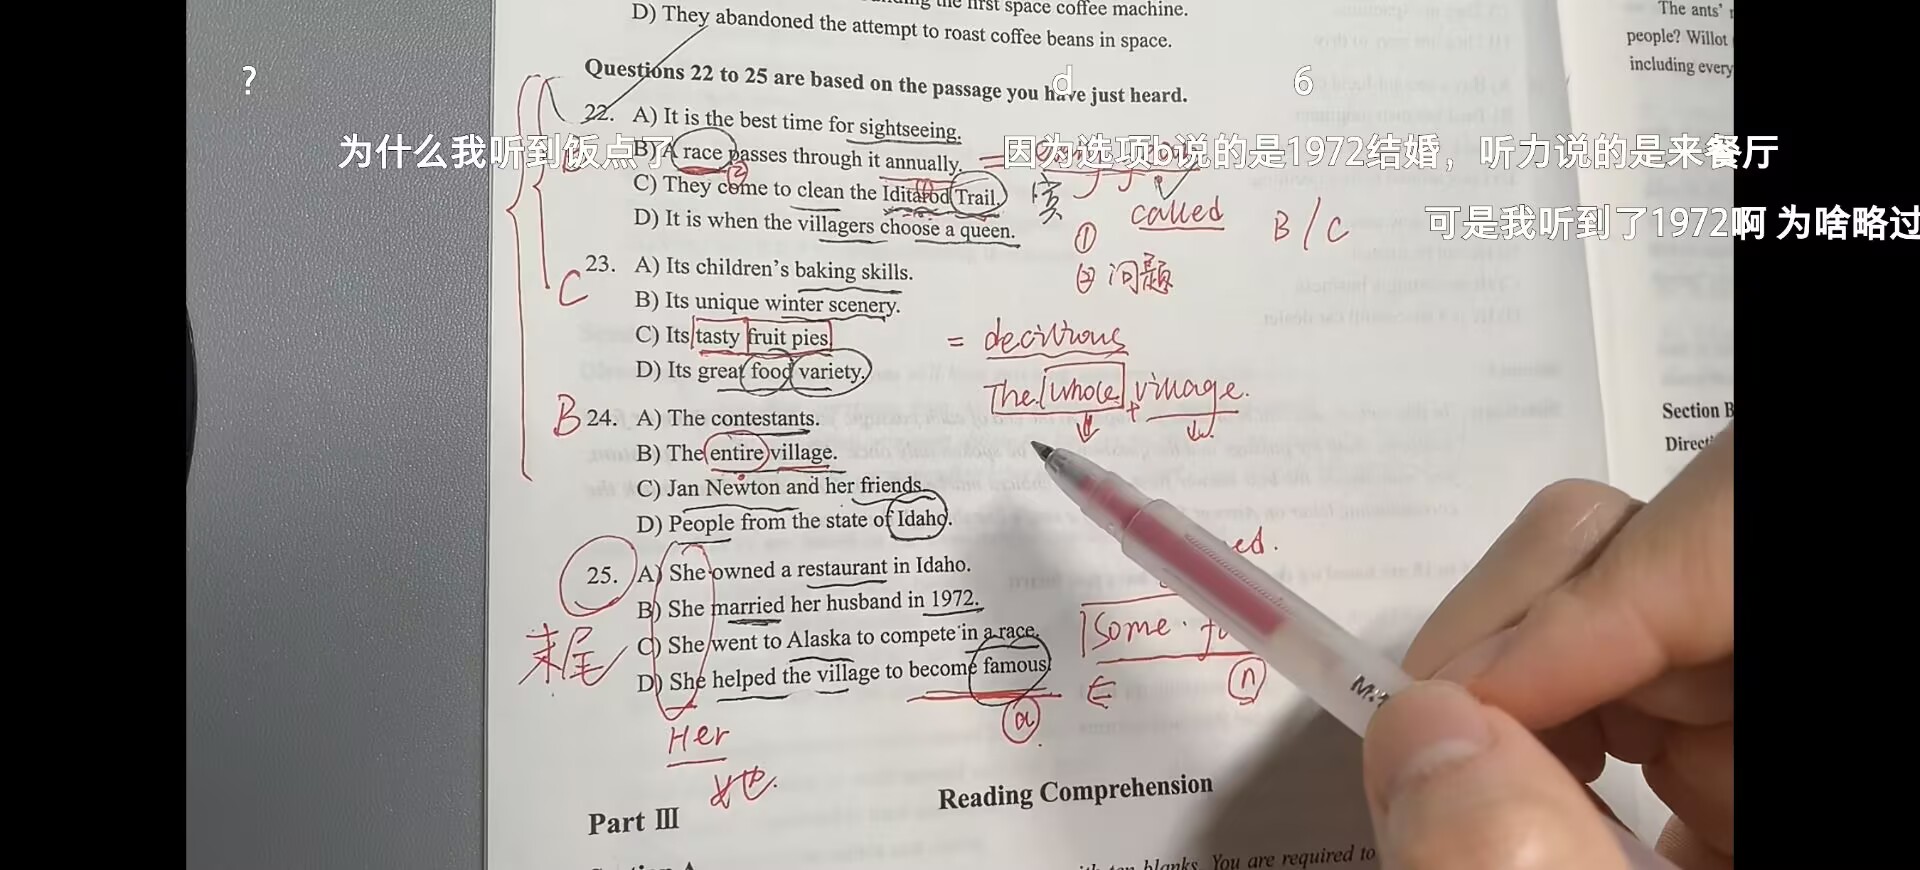 the first space coffee machine.
D) They abandoned the attempt to roast coffee beans in space.
Questions 22 to 25 are based on the passage you have just heard.
22. A) It is the best time for sightseeing.
B) A race passes through it annually.
C) They come to clean the Iditarod Trail.
D) It is when the villagers choose a queen.
23. A) Its children's baking skills.
B) Its unique winter scenery.
C) Its tasty fruit pies.
D) Its great food variety.
24. A) The contestants.
B) The entire village.
C) Jan Newton and her friends.
D) People from the state of Idaho.
25. A) She owned a restaurant in Idaho.
B) She married her husband in 1972.
C) She went to Alaska to compete in a race.
D) She helped the village to become famous.
Part III
Reading Comprehension
blanks. You are required to
The ants'
people? Willot
including every
Section B
?
d
6
为什么我听到饭点了
因为选项b说的是1972结婚，听力说的是来餐厅
可是我听到了1972啊 为啥略过
② ①
called
B / C
①
② 问题
C
= decitious
The whole + village.
B
ed.
Some
ⓐ
ⓝ
末尾
Her
她.